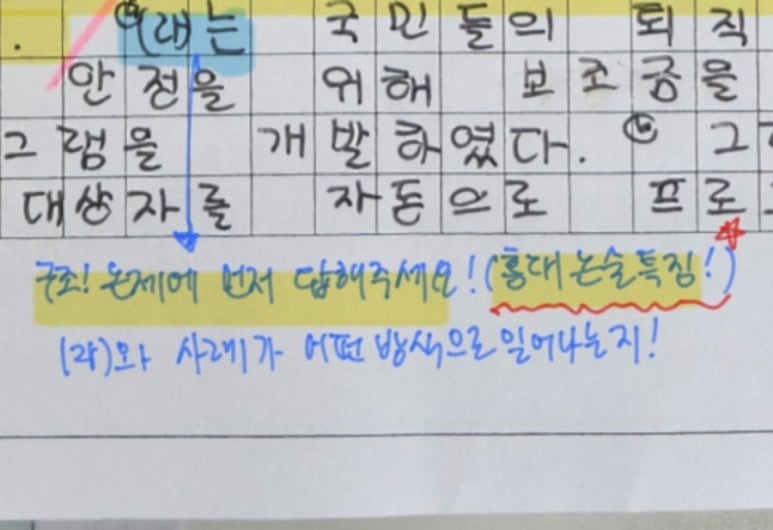 . (라)는 국민들의 퇴직
안정을 위해 보조금을
그램을 개발하였다. 그
대상자를 자동으로 프로
구조! 논제에 먼저 답해주세요! (홍대 논술 특징!)
(라)와 사례가 어떤 방식으로 일어나는지!